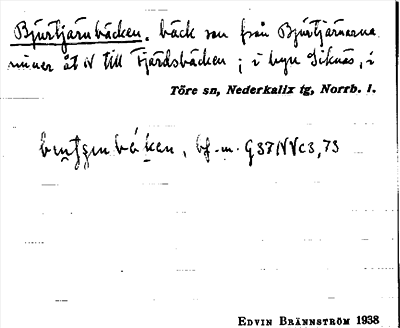 Bjurtjärnbäcken. bäck som från Bjurtjärnarna
rinner åt N till Fjärdsbäcken; i byn Siknäs, i
Töre sn, Nederkalix tg, Norrb. l.
bf. m. G37NVc3, 73
EDVIN BRÄNNSTRÖM 1938